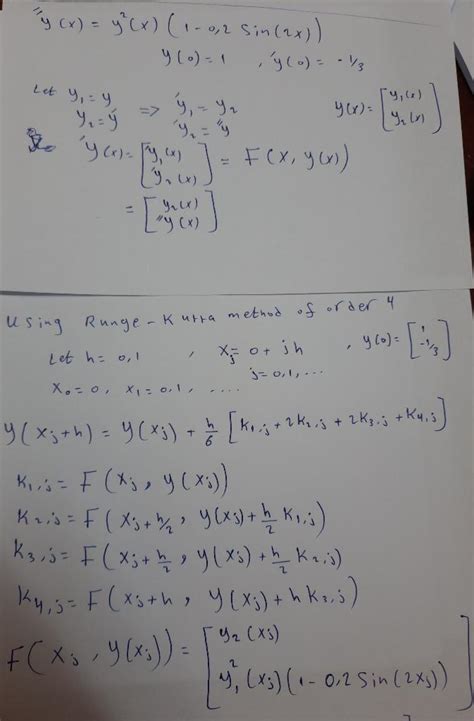 ″y(x) = y²(x) (1-0,2 Sin(2x))
y(0)=1 , ′y(0)= -1/3
Let y₁=y => ′y₁ = y₂ y(x)= [y₁(x)
y₂=′y ′y₂ = ″y y₂(x)]
′y(x)= [′y₁(x)
′y₂(x)] = F(x, y(x))
= [y₂(x)
″y(x)]
Using Runge-Kutta method of order 4
Let h=0,1 , xⱼ=0+jh , y(0)= [1
-1/3]
j=0,1,...
x₀=0, x₁=0,1, ....
y(xⱼ+h) = y(xⱼ) + h/6 [K₁,ⱼ + 2K₂,ⱼ + 2K₃,ⱼ + K₄,ⱼ]
K₁,ⱼ = F(xⱼ, y(xⱼ))
K₂,ⱼ = F(xⱼ+h/2, y(xⱼ)+h/2 K₁,ⱼ)
K₃,ⱼ = F(xⱼ+h/2, y(xⱼ)+h/2 K₂,ⱼ)
K₄,ⱼ = F(xⱼ+h, y(xⱼ)+h K₃,ⱼ)
F(xⱼ, y(xⱼ)) = [y₂(xⱼ)
y₁²(xⱼ)(1-0,2 Sin(2xⱼ))]